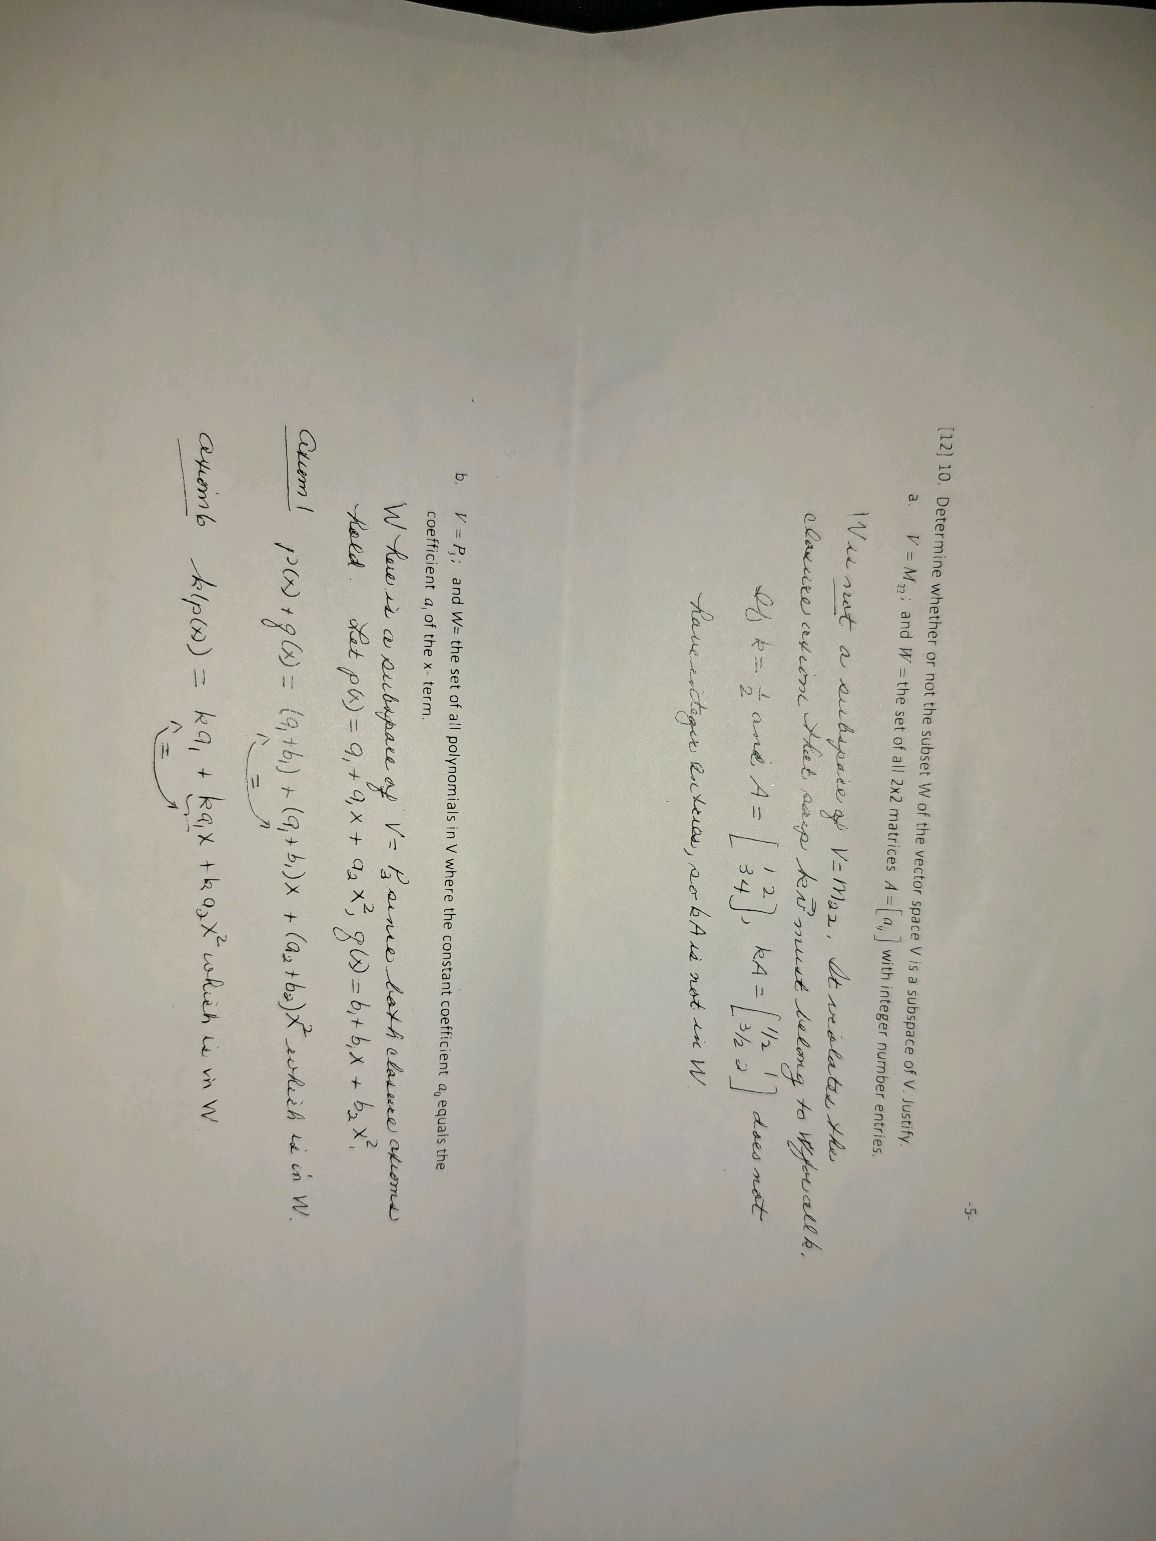 -5-
[12] 10. Determine whether or not the subset W of the vector space V is a subspace of V. Justify.
a. V = M₂₂; and W = the set of all 2x2 matrices A = [aᵢⱼ] with integer number entries.
W is not a subspace of V = M₂₂. It violates the
closure axiom that says kv⃗ must belong to W for all k.
If k = 1/2 and A = [1 2; 3 4], kA = [1/2 1; 3/2 2] does not
have integer entries, so kA is not in W
b. V = P₃; and W= the set of all polynomials in V where the constant coefficient a₀ equals the
coefficient a₁ of the x- term.
W here is a subspace of V = P₃ since both closure axioms
hold. Let p(x) = a₁ + a₁x + a₂x², g(x) = b₁ + b₁x + b₂x².
Axiom 1 p(x) + g(x) = (a₁+b₁) + (a₁+b₁)x + (a₂+b₂)x² which is in W.
=
Axiom 6 k(p(x)) = ka₁ + ka₁x + ka₂x² which is in W
=